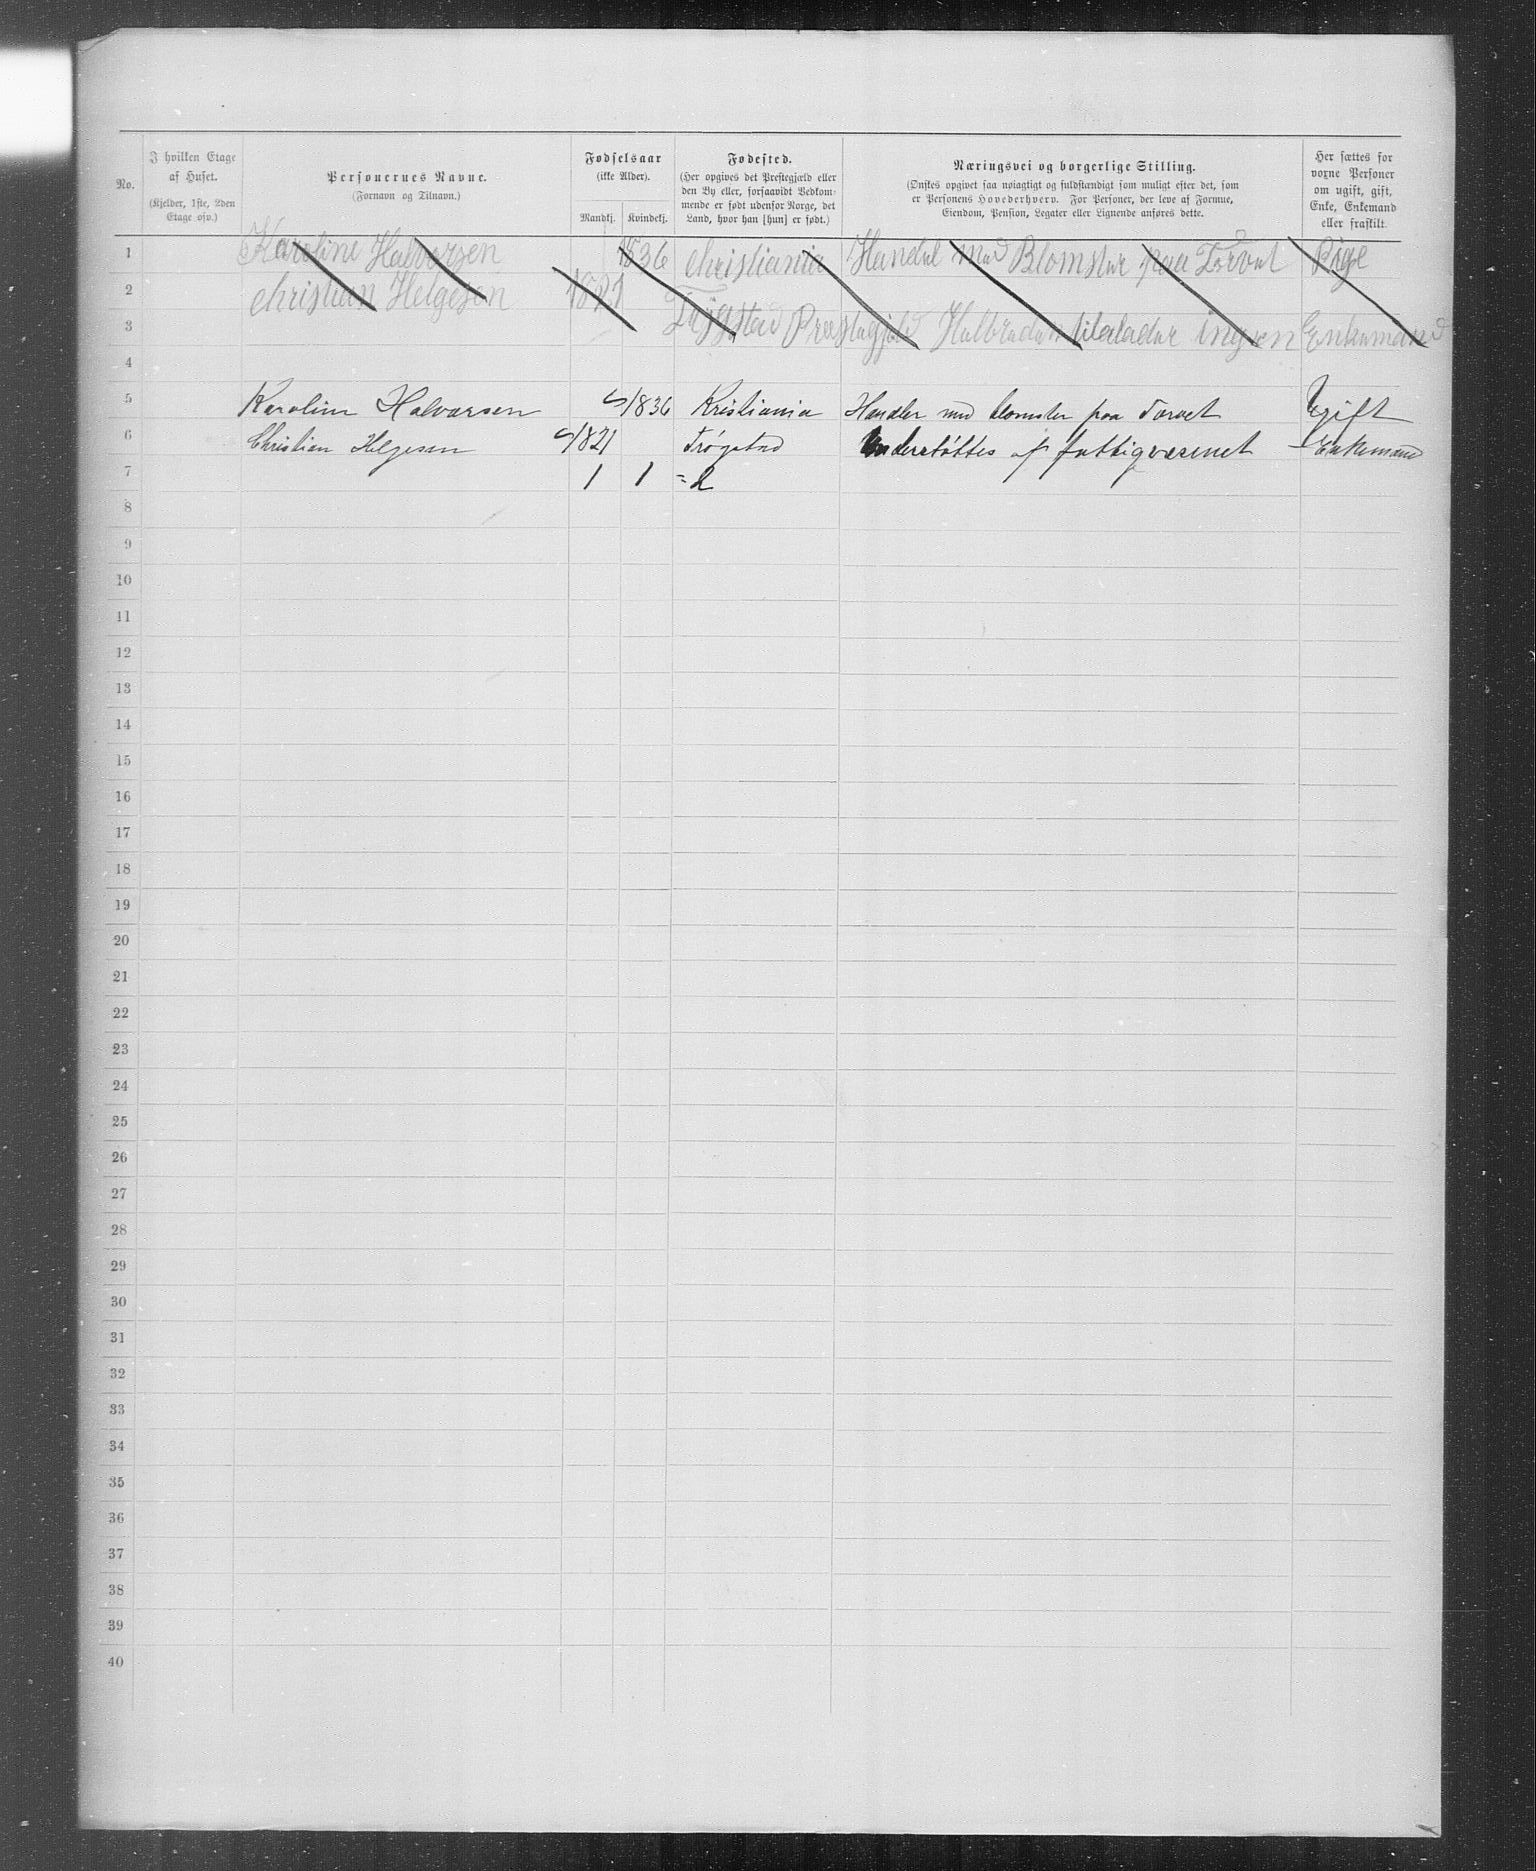 No.
I hvilken Etage af Huset.
(Kjelder, 1ste, 2den Etage osv.)
Personernes Navne.
(Fornavn og Tilnavn.)
Fødselsaar
(ikke Alder).
Mandkj. Kvindekj.
Fødested.
(Her opgives det Prestegjæld eller
den By eller, forsaavidt Vedkom-
mende er født udenfor Norge, det
Land, hvor han [hun] er født.)
Næringsvei og borgerlige Stilling.
(Ønskes opgivet saa nøiagtigt og fuldstændigt som muligt efter det, som
er Personens Hovederhverv. For Personer, der leve af Formue,
Eiendom, Pension, Legater eller Lignende anføres dette.
Her sættes for
voxne Personer
om ugift, gift,
Enke, Enkemand
eller fraskilt.
1 Karoline Halvorsen 1836 christiania Handel med Blomster paa Torvet Pige
2 christian Helgesen 1821
3 Prestegjeld ingen Enkemand
4
5 Karolin Halvorsen 1836 Kristiania Handler med blomster paa Torvet Ugift
6 Christian Helgesen 1821 Trøgstad Understøttes af fattigvæsenet Enkemand
7 1 1 = 2
8
9
10
11
12
13
14
15
16
17
18
19
20
21
22
23
24
25
26
27
28
29
30
31
32
33
34
35
36
37
38
39
40